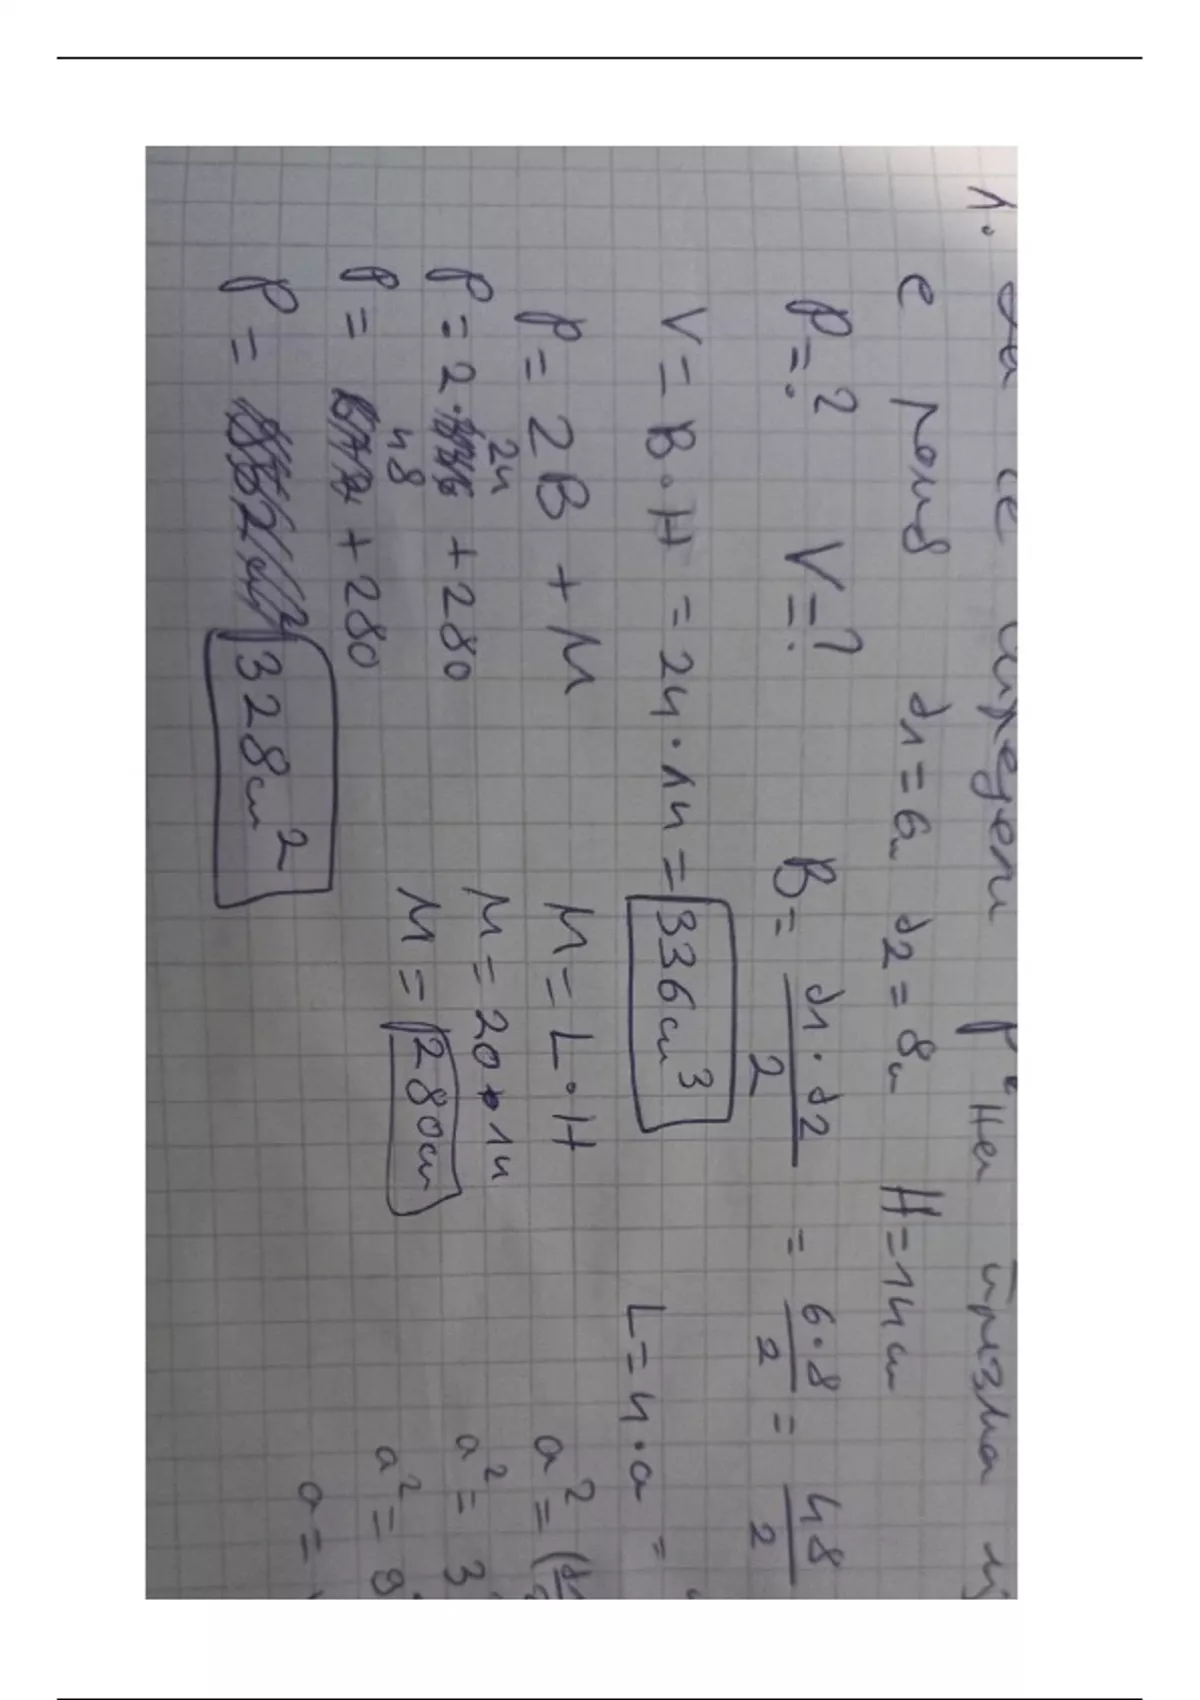 1. Да се определи P на призма
е ромб d1=6cm d2=8cm H=14cm
P=? V=? B= d1·d2/2 = 6·8/2 = 48/2
V=B·H = 24·14 = 336cm³ L=4·a =
P=2B+M M=L·H a²=(d1
P=2·24+280 M=20·14 a²=3
P=48+280 M=280cm a²=9
P= 328cm² a=